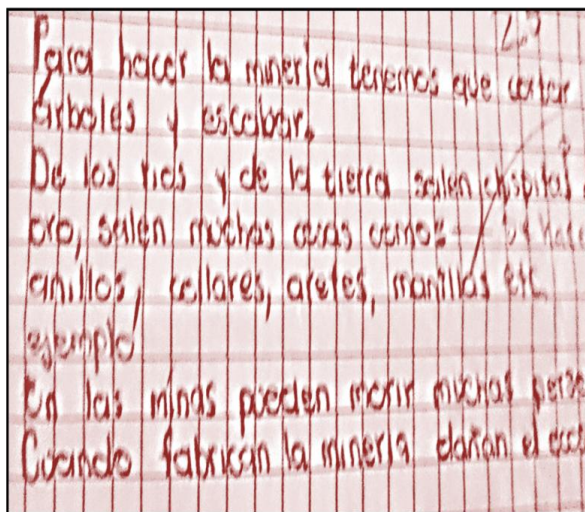 Para hacer la minería tenemos que cortar
árboles y escobar.
De los ríos y de la tierra salen chispitas
oro, salen muchas cosas como: se hace
anillos, collares, aretes, manillas etc
ejemplo
En las minas pueden morir muchas perso
Cuando fabrican la minería dañan el eco